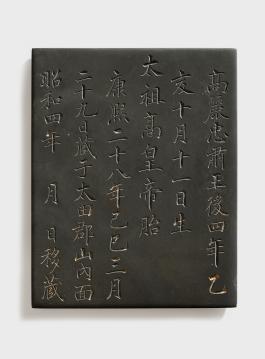 高麗忠肅王後四年乙
亥十月十一日生
太祖高皇帝胎
康熙二十八年己巳三月
二十九日藏于太田郡山內面
昭和四年　月　日移藏